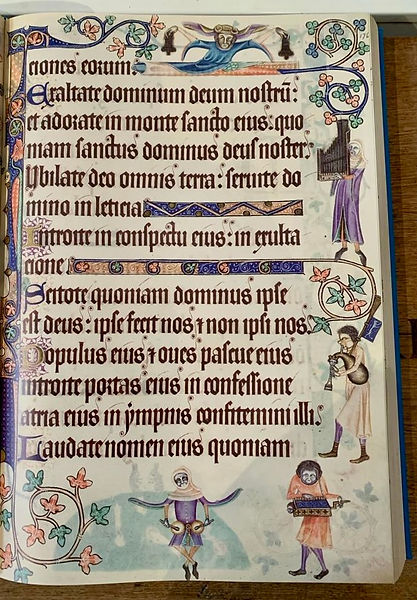 176
ciones eorum:
Exaltate dominum deum nostrū:
et adorate in monte sancto eius: quo
niam sanctus dominus deus noster.
Iubilate deo omnis terra: seruite do
mino in leticia
Introite in conspectu eius: in exulta
cione
Scitote quoniam dominus ipse
est deus: ipse fecit nos ⁊ non ipsi nos.
Populus eius ⁊ oues pascue eius
introite portas eius in confessione
atria eius in ympnis confitemini illi.
Laudate nomen eius quoniam